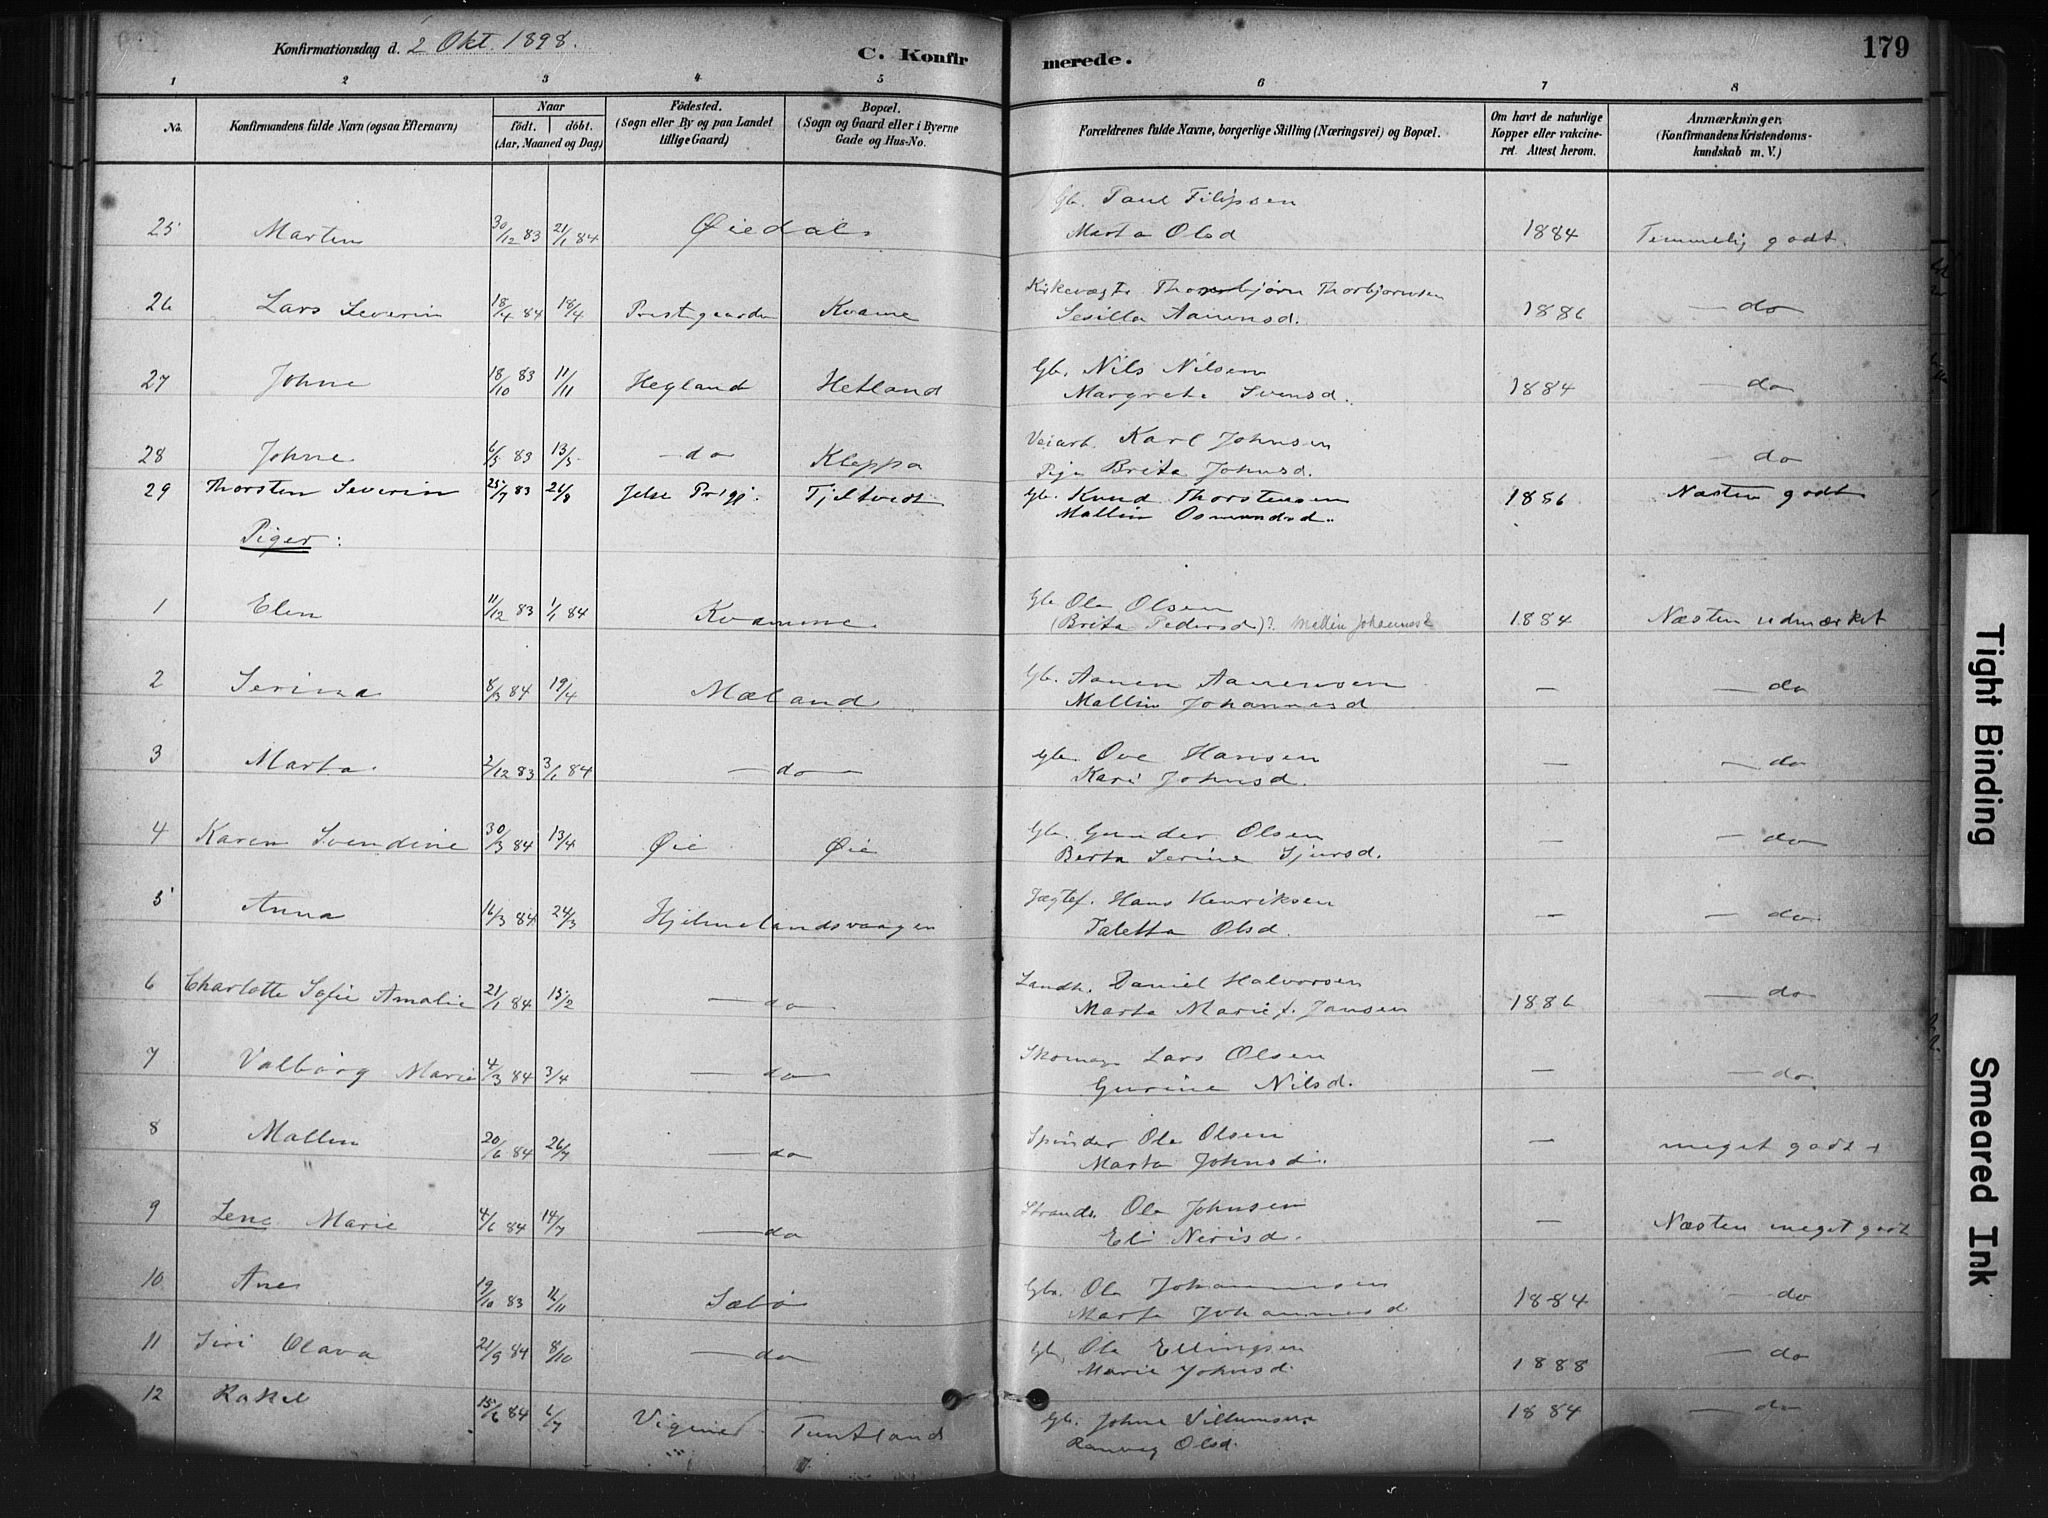 Konfirmationsdag d. 2 Okt. 1898.
C. Konfirmerede.
179
1 2 3 4 5 6 7 8
No.
Konfirmandens fulde Navn (ogsaa Efternavn)
Naar
födt. döbt.
(Aar, Maaned og Dag)
Födested.
(Sogn eller By og paa Landet
tillige Gaard)
Bopæl.
(Sogn og Gaard eller i Byerne
Gade og Hus-No.
Forældrenes fulde Navne, borgerlige Stilling (Næringsvei) og Bopæl.
Om havt de naturlige
Kopper eller vakcine-
ret. Attest herom.
Anmærkninger.
(Konfirmandens Kristendoms-
kundskab m. V.)
Gb. Paul Filipsen
25 Martin 30/12 83 21/1 84 Øiedal Marta Olsd 1884 Temmelig godt.
Kirkevægt. Thorbjørn Thorbjørnsen
26 Lars Severin 18/4 84 18/4 Prestgaarden Kvame Sesilla Aanensd. 1886 — do
Gb. Nils Nilsen
27 Johne 18/10 83 11/11 Hegland Hetland Margrete Svensd. 1884 — do
Veiarb. Karl Johnsen
28 Johne 6/5 83 13/5 — do Kleppa Pige Brita Johnsd. — do
29 Thorsten Severin 25/7 83 26/8 Jelse Prgj. Tjeltvedt Gb. Knud Thorstensen 1886 Næsten godt
Mallin Osmundsd.
Piger:
Gb. Ole Olsen
1 Elen 11/12 83 1/1 84 Kvamme (Brita Pedersd)? Mallin Johannesd 1884 Næsten udmærket
Gb. Aanen Aanensen
2 Serina 8/3 84 19/4 Mæland Mallin Johannesd — — do
Gb. Ove Hansen
3 Marta 2/12 83 3/1 84 — do — Kari Johnsd. — — do
Gb. Gunder Olsen
4 Karen Svendine 30/3 84 13/4 Øie Øie Berta Serine Sjursd. — — do
Jægtef. Hans Henriksen
5 Anna 16/3 84 24/3 Hjelmelandsvaagen Taletta Olsd. — — do
Landh. Daniel Halvorsen
6 Charlotte Sofie Amalie 21/1 84 15/2 — do Marta Marie f. Jansen 1886 — do
Skomag. Lars Olsen
7 Valborg Marie 4/3 84 3/4 — do Gurine Nilsd. — — do
Spinder Ole Olsen
8 Mallin 20/6 84 26/7 — do Marta Johnsd. — meget godt +
Strands. Ole Johnsen
9 Lene Marie 4/6 84 14/7 — do Eli Nerisd. — Næsten meget godt
Gbr. Ole Johannesen
10 Ane 19/10 83 11/11 Sæbø Marta Johannesd 1884 — do
Gb. Ole Ellingsen
11 Siri Olava 21/9 84 8/10 — do Marie Johnsd. 1888 — do
12 Rakel 15/6 84 6/7 Tuntland Gb. Johne Villumsen 1884 — do
Ranveig Olsd.
Tight Binding
Smeared Ink